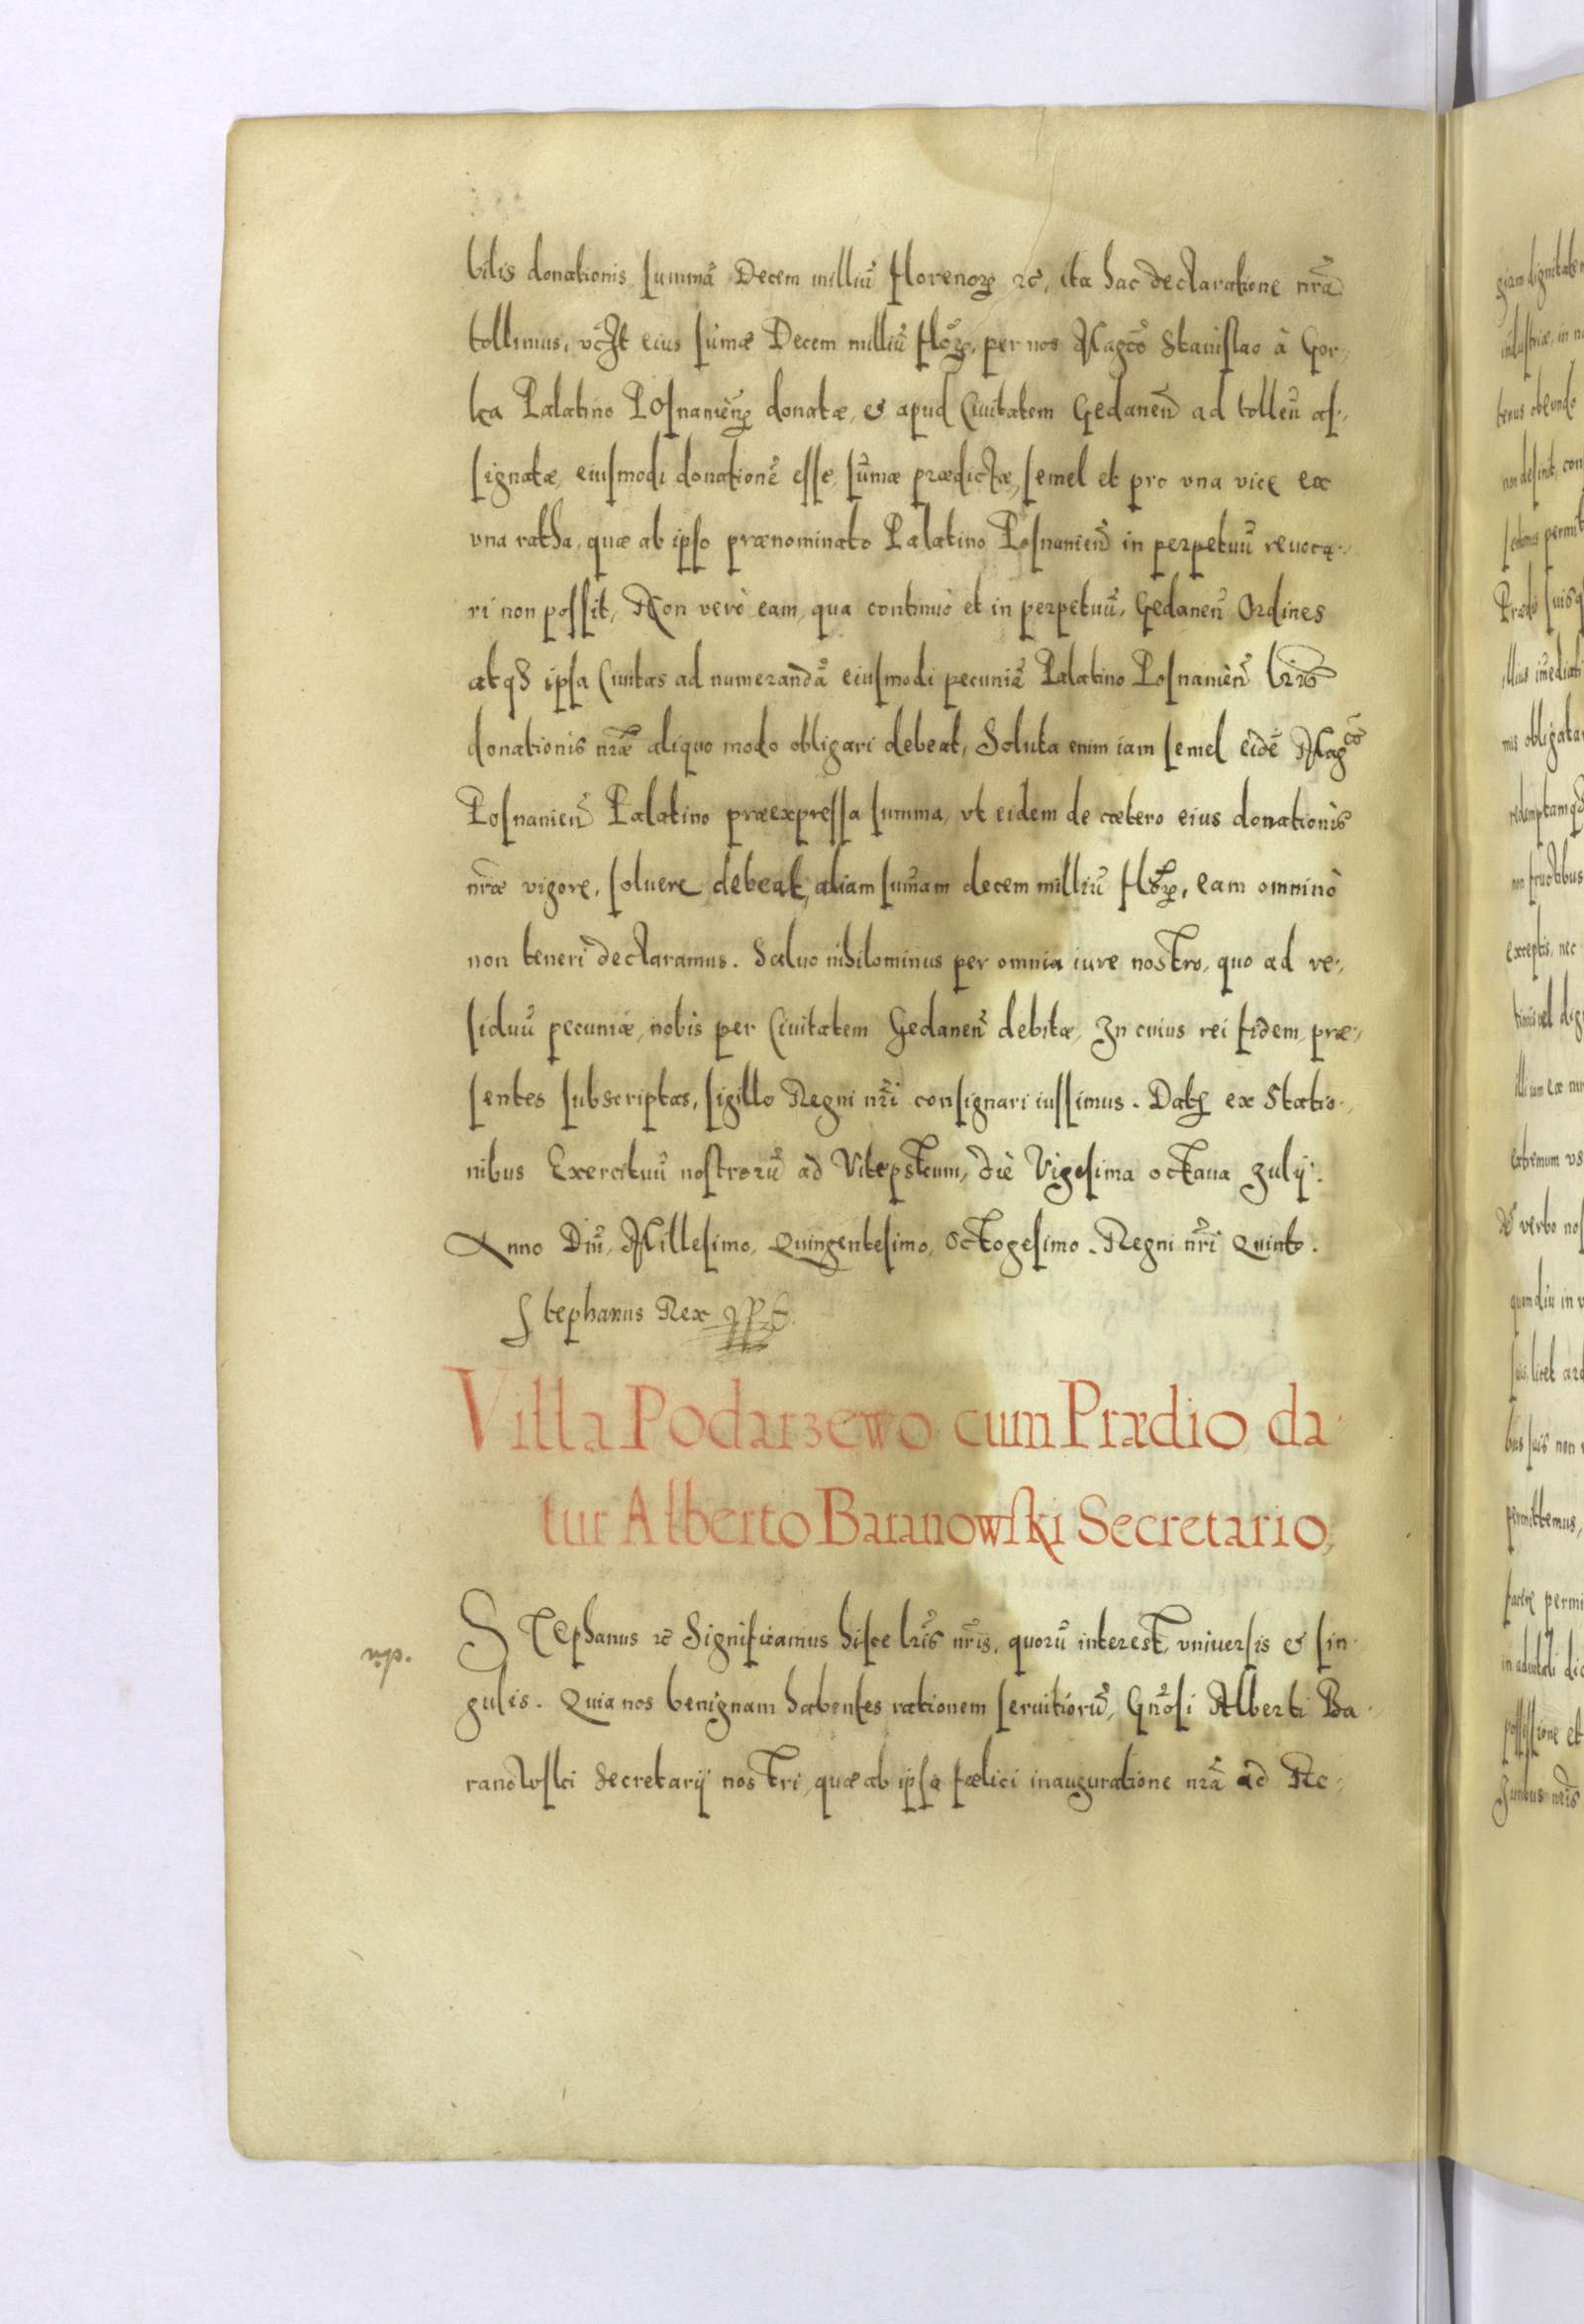 bilis donationis summã Decem milliũ florenoꝝ ꝛc̃, ita hac declaratione nr̃a
tollimus, eius sũmæ Decem milliũ flõꝝ, per nos Magc̃o Stanislao à Gor,,
ka Palatino Posnanień donatæ, et apud Ciuitatem Gedaneñ ad tolleñ as,,
signatæ, eiusmodi donationẽ esse, sũmæ prædictæ, semel et pro vna vice ex
vna ratha, quæ ab ipso prænominato Palatino Posnanieñ in perpetuũ reuoca,,
ri non possit, Non verò eam, qua continuò et in perpetuũ, Gedaneñ Ordines
atqꝫ ipsa Ciuitas ad numerandã eiusmodi pecuniã Palatino Posnanieñ
donationis nr̃æ aliquo modo obligari debeat, Soluta enim iam semel eidẽ Magc̃o
Posnanieñ Palatino præexpressa summa, vt eidem de cætero eius donationis
nr̃æ vigore, soluere debeat, aliam sum̃am decem milliũ flõꝝ, eam omninò
non teneri declaramus. Saluo nihilominus per omnia iure nostro, quo ad re,,
siduũ pecuniæ, nobis per Ciuitatem Gedaneñ debitæ, In cuius rei fidem, præ,,
sentes subscriptas, sigillo Regni nr̃i consignari iussimus. Datꝫ ex Statio,,
nibus Exercituũ nostrorũ ad Vitepscum, die Vigesima octaua Julij.
Anno Dn̄i, Millesimo, Quingentesimo, Octogesimo. Regni nr̃i Quinto.
Stephanus Rex
Villa Podarzewo cum Prædio da
tur Alberto Baranowski Secretario,
Stephanus ꝛc̃ Significamus hisce lr̃is nr̃is, quorũ interest, vniuersis et sin
gulis. Quia nos benignam habentes rationem seruitiorũ, Gñosi Alberti Ba
ranowski Secretarij nostri, quæ ab ipsa fœlici inauguratione nr̃a ad Re,,